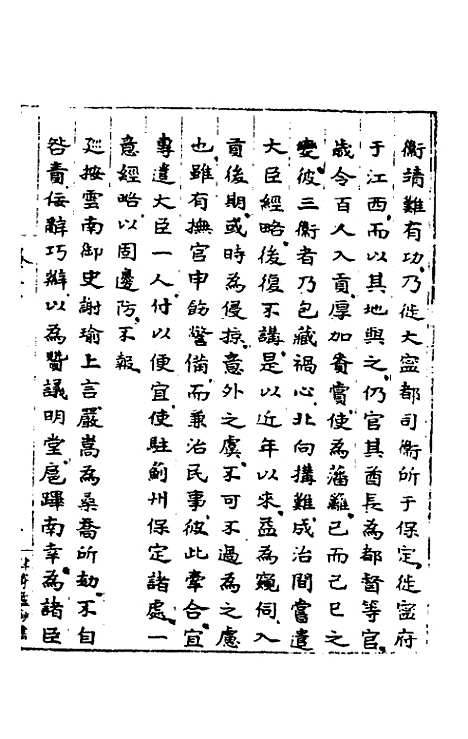 衞靖難有功乃徙大寧都司衞所于保定徙寧府
于江西而以其地與之仍官其酋長為都督等官
歲令百人入貢厚加賚賞使為藩籬已而己巳之
變彼三衞者乃包藏禍心北向搆難成治間嘗遣
大臣經略後復不講是以近年以來益為窺伺入
貢後期或時為侵掠意外之虞不可不過為之慮
也雖有撫官申飭警備而兼治民事彼此牽合宜
專遣大臣一人付以便宜使駐薊州保定諸處一
意經略以固邊防不報
廵按雲南御史謝瑜上言嚴嵩為桑喬所劾不自
咎責佞辭巧辯以為贊議明堂扈蹕南幸為諸臣